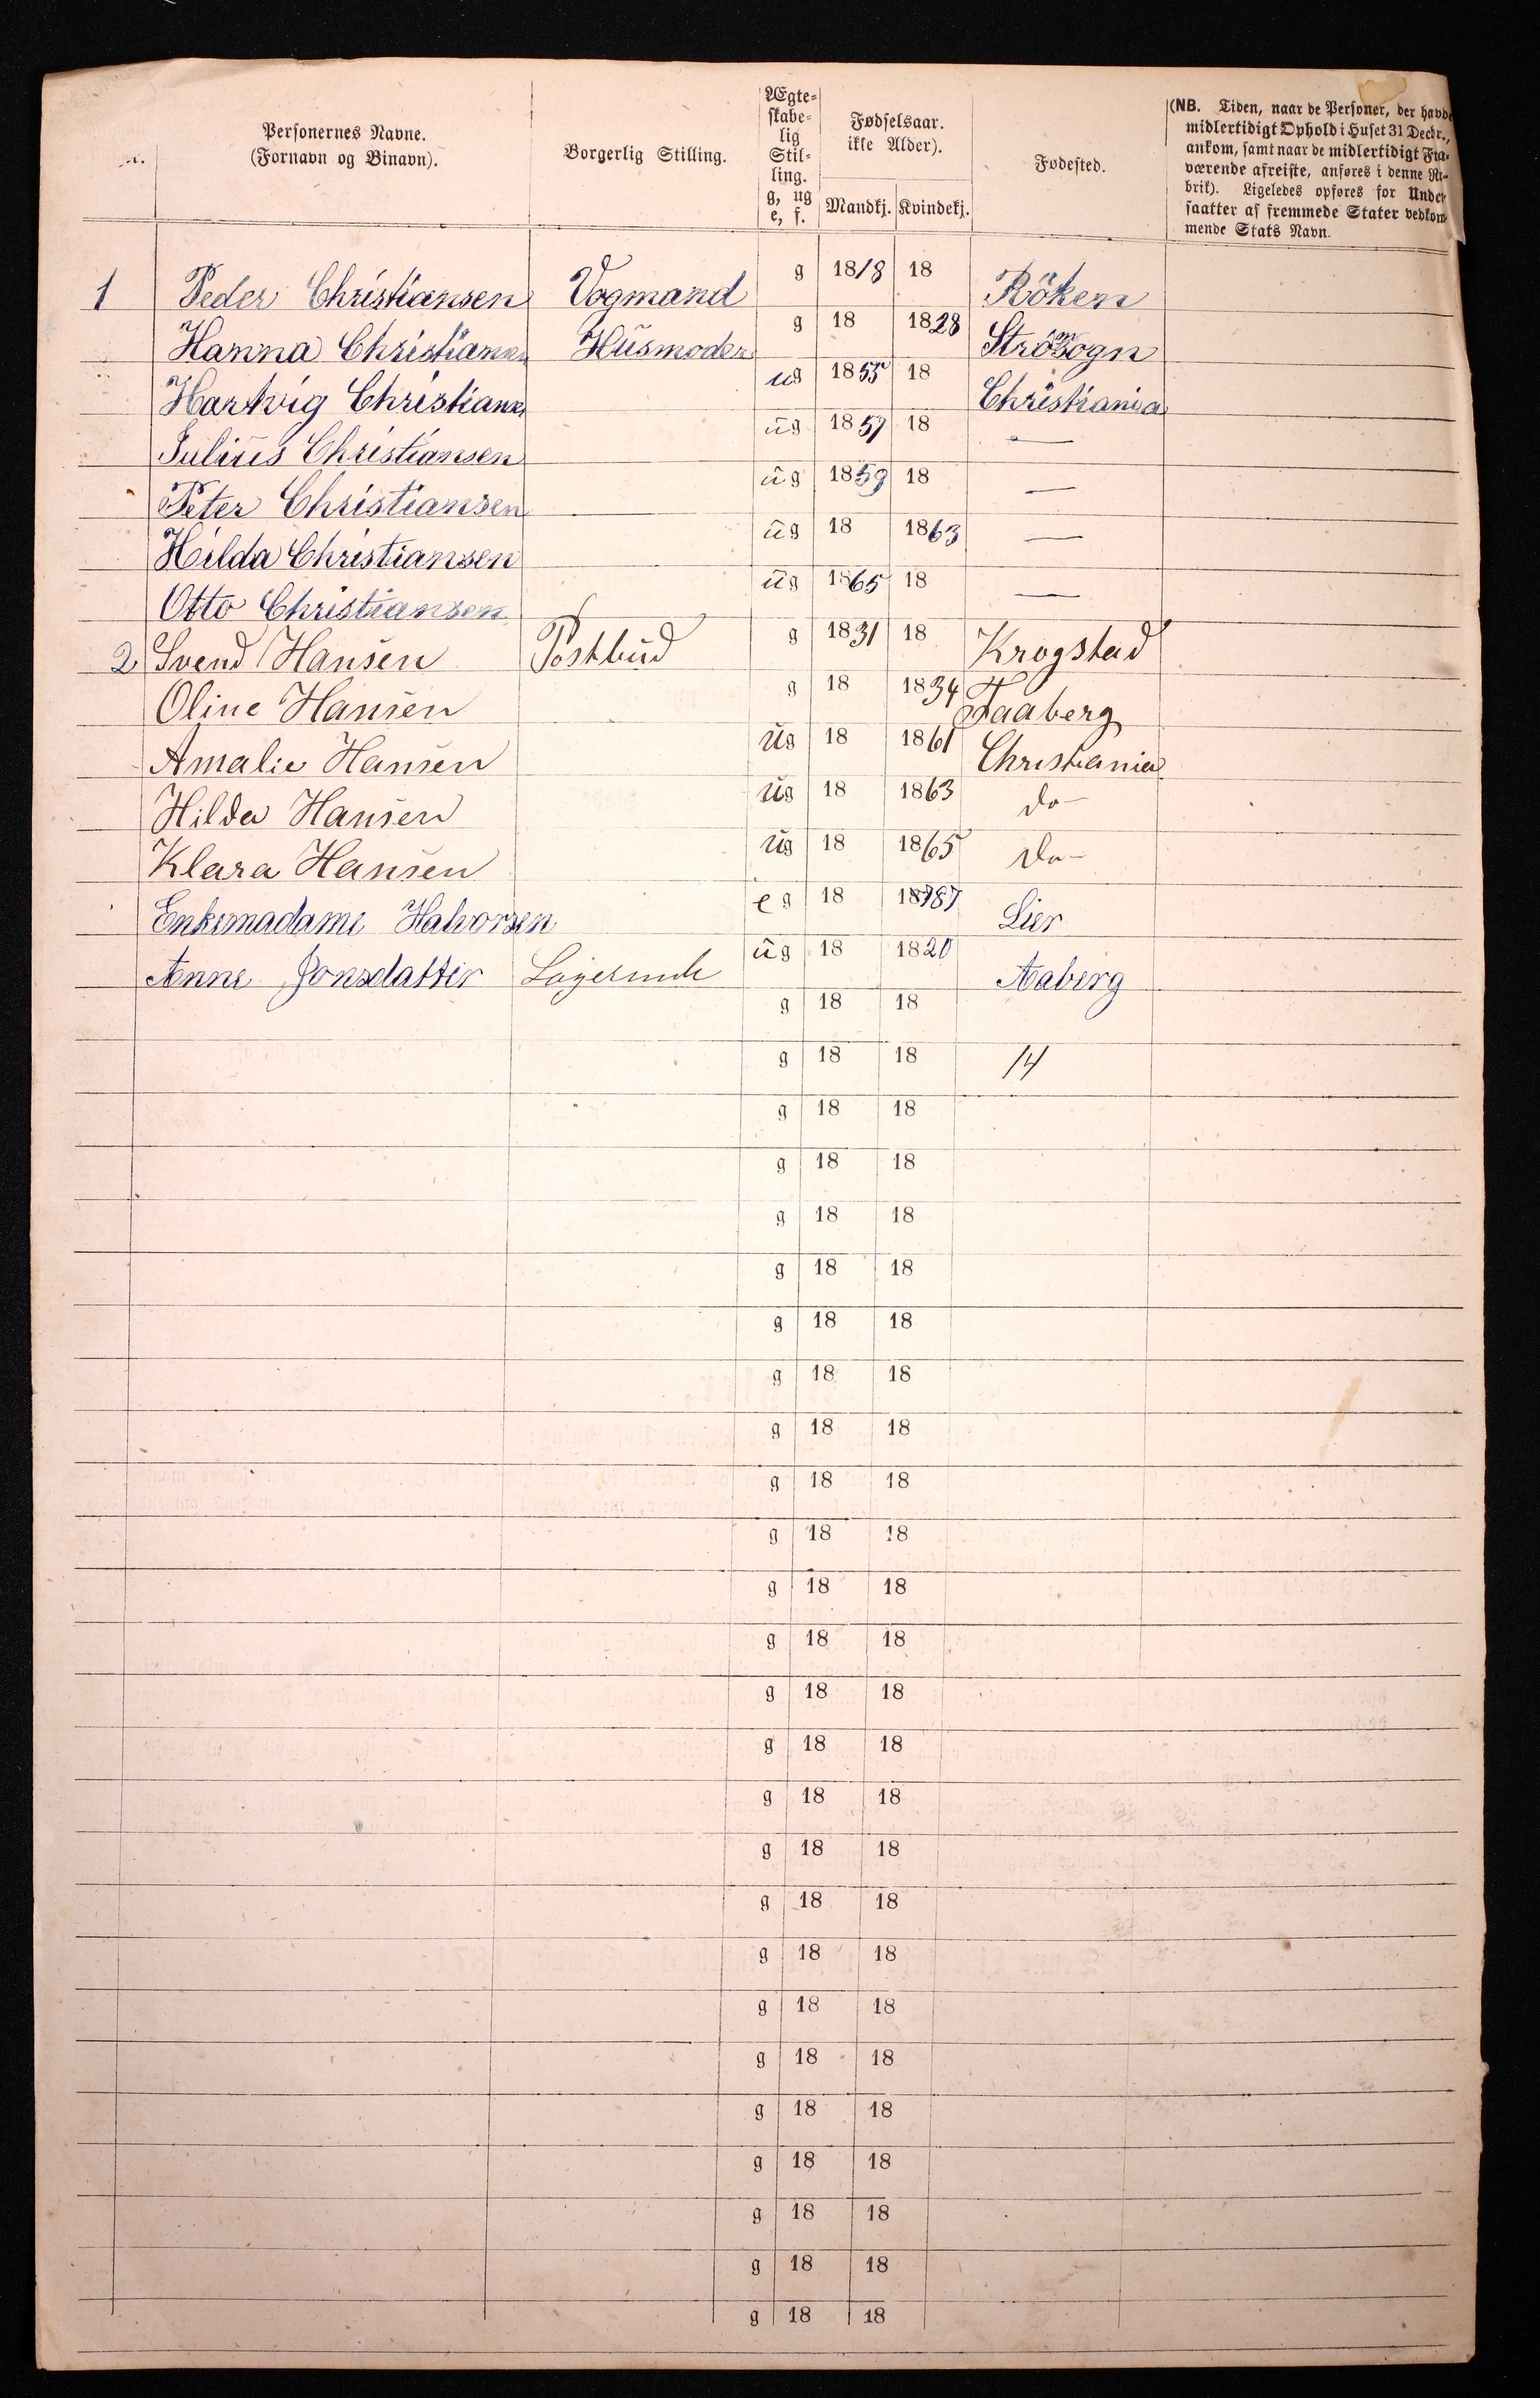 Personernes Navne.
(Fornavn og Binavn).
Borgerlig Stilling.
Ægte-
skabe-
lig
Stil-
ling.
g, ug
e, f.
Fødselsaar.
ikke Alder).
Mandkj. Kvindekj.
Fødested.
(NB. Tiden, naar de Personer, der havde
midlertidigt Ophold i Huset 31 Decbr.,
ankom, samt naar de midlertidigt Fra-
værende afreiste, anføres i denne Ru-
brik). Ligeledes opføres for Under-
saatter af fremmede Stater vedkom-
mende Stats Navn.
1 Peder Christiansen Vogmand g 1818 18 Röken
Hanna Christiansen Husmoder g 18 1828 Strömsogn
Hartvig Christians ug 1855 18 Christiania
Julius Christiansen ug 1857 18 —
Peter Christiansen ug 1859 18 —
Hilda Christiansen ug 18 1863 —
Otto Christiansen ug 1865 18 —
2 Svend Hansen Postbud g 1831 18 Krogstad
Oline Hansen g 18 1834 Faaberg
Amalie Hansen ug 18 1861 Christiania
Hilda Hansen ug 18 1863 do—
Klara Hansen ug 18 1865 do—
Enkemadame Halvorsen eg 18 1787 Lier
Anne Jonsdatter Logerende ug 18 1820 Aaberg
g 18 18
g 18 18 14
g 18 18
g 18 18
g 18 18
g 18 18
g 18 18
g 18 18
g 18 18
g 18 18
g 18 18
g 18 18
g 18 18
g 18 18
g 18 18
g 18 18
g 18 18
g 18 18
g 18 18
g 18 18
g 18 18
g 18 18
g 18 18
g 18 18
g 18 18
g 18 18